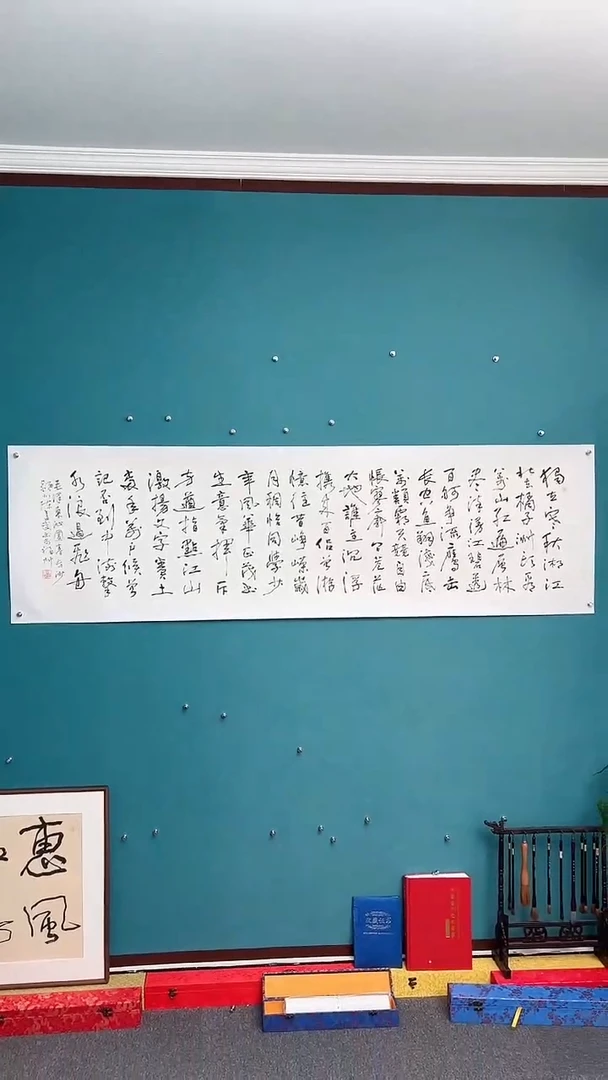 獨立寒秋湘江
北去橘子洲頭看
萬山紅遍層林
盡染漫江碧透
百舸爭流鷹击
長空魚翔淺底
萬類霜天競自由
悵寥廓問蒼茫
大地誰主沉浮
攜來百侶曾游
憶往昔崢嶸歲
月稠恰同學少
年風華正茂书
生意氣揮斥
方遒指點江山
激揚文字糞土
當年萬戶侯曾
記否到中流擊
水浪遏飛舟
毛澤東沁園春長沙
惠風
收藏证书